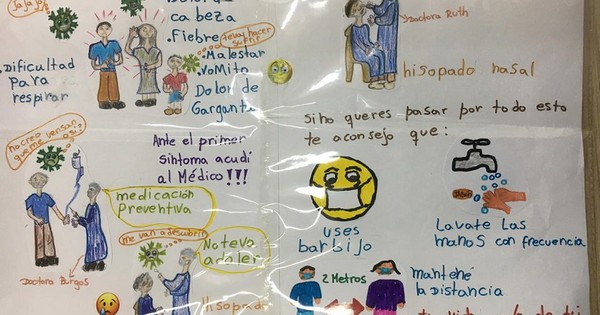 Ja Ja Ja
cabeza
.Fiebre
te voy hacer
sufrir
.Dificultad
Para
respirar
.Malestar
.Vomito
Dolor de
Garganta
Doctora Ruth
hisopado nasal
Si no queres pasar por todo esto
te aconsejo que:
no creo que vensan
que me gusi
Ante el primer
síntoma acudí
al Médico!!!
medicación
Preventiva
me van a descubrir
No te va
a doler
Doctora Burgos
Hisopado
uses
barbijo
Jabon
Lavate Las
manos con frecuencia
2 Metros
mantené
la Distancia